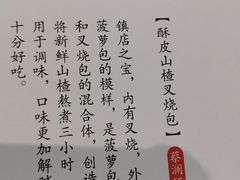 【酥皮山楂叉烧包】
镇店之宝，内有叉烧，外
菠萝包的模样，是菠萝包
和叉烧包的混合体，创造
将新鲜山楂熬煮三小时
用于调味，口味更加解腻
十分好吃。
蔡澜